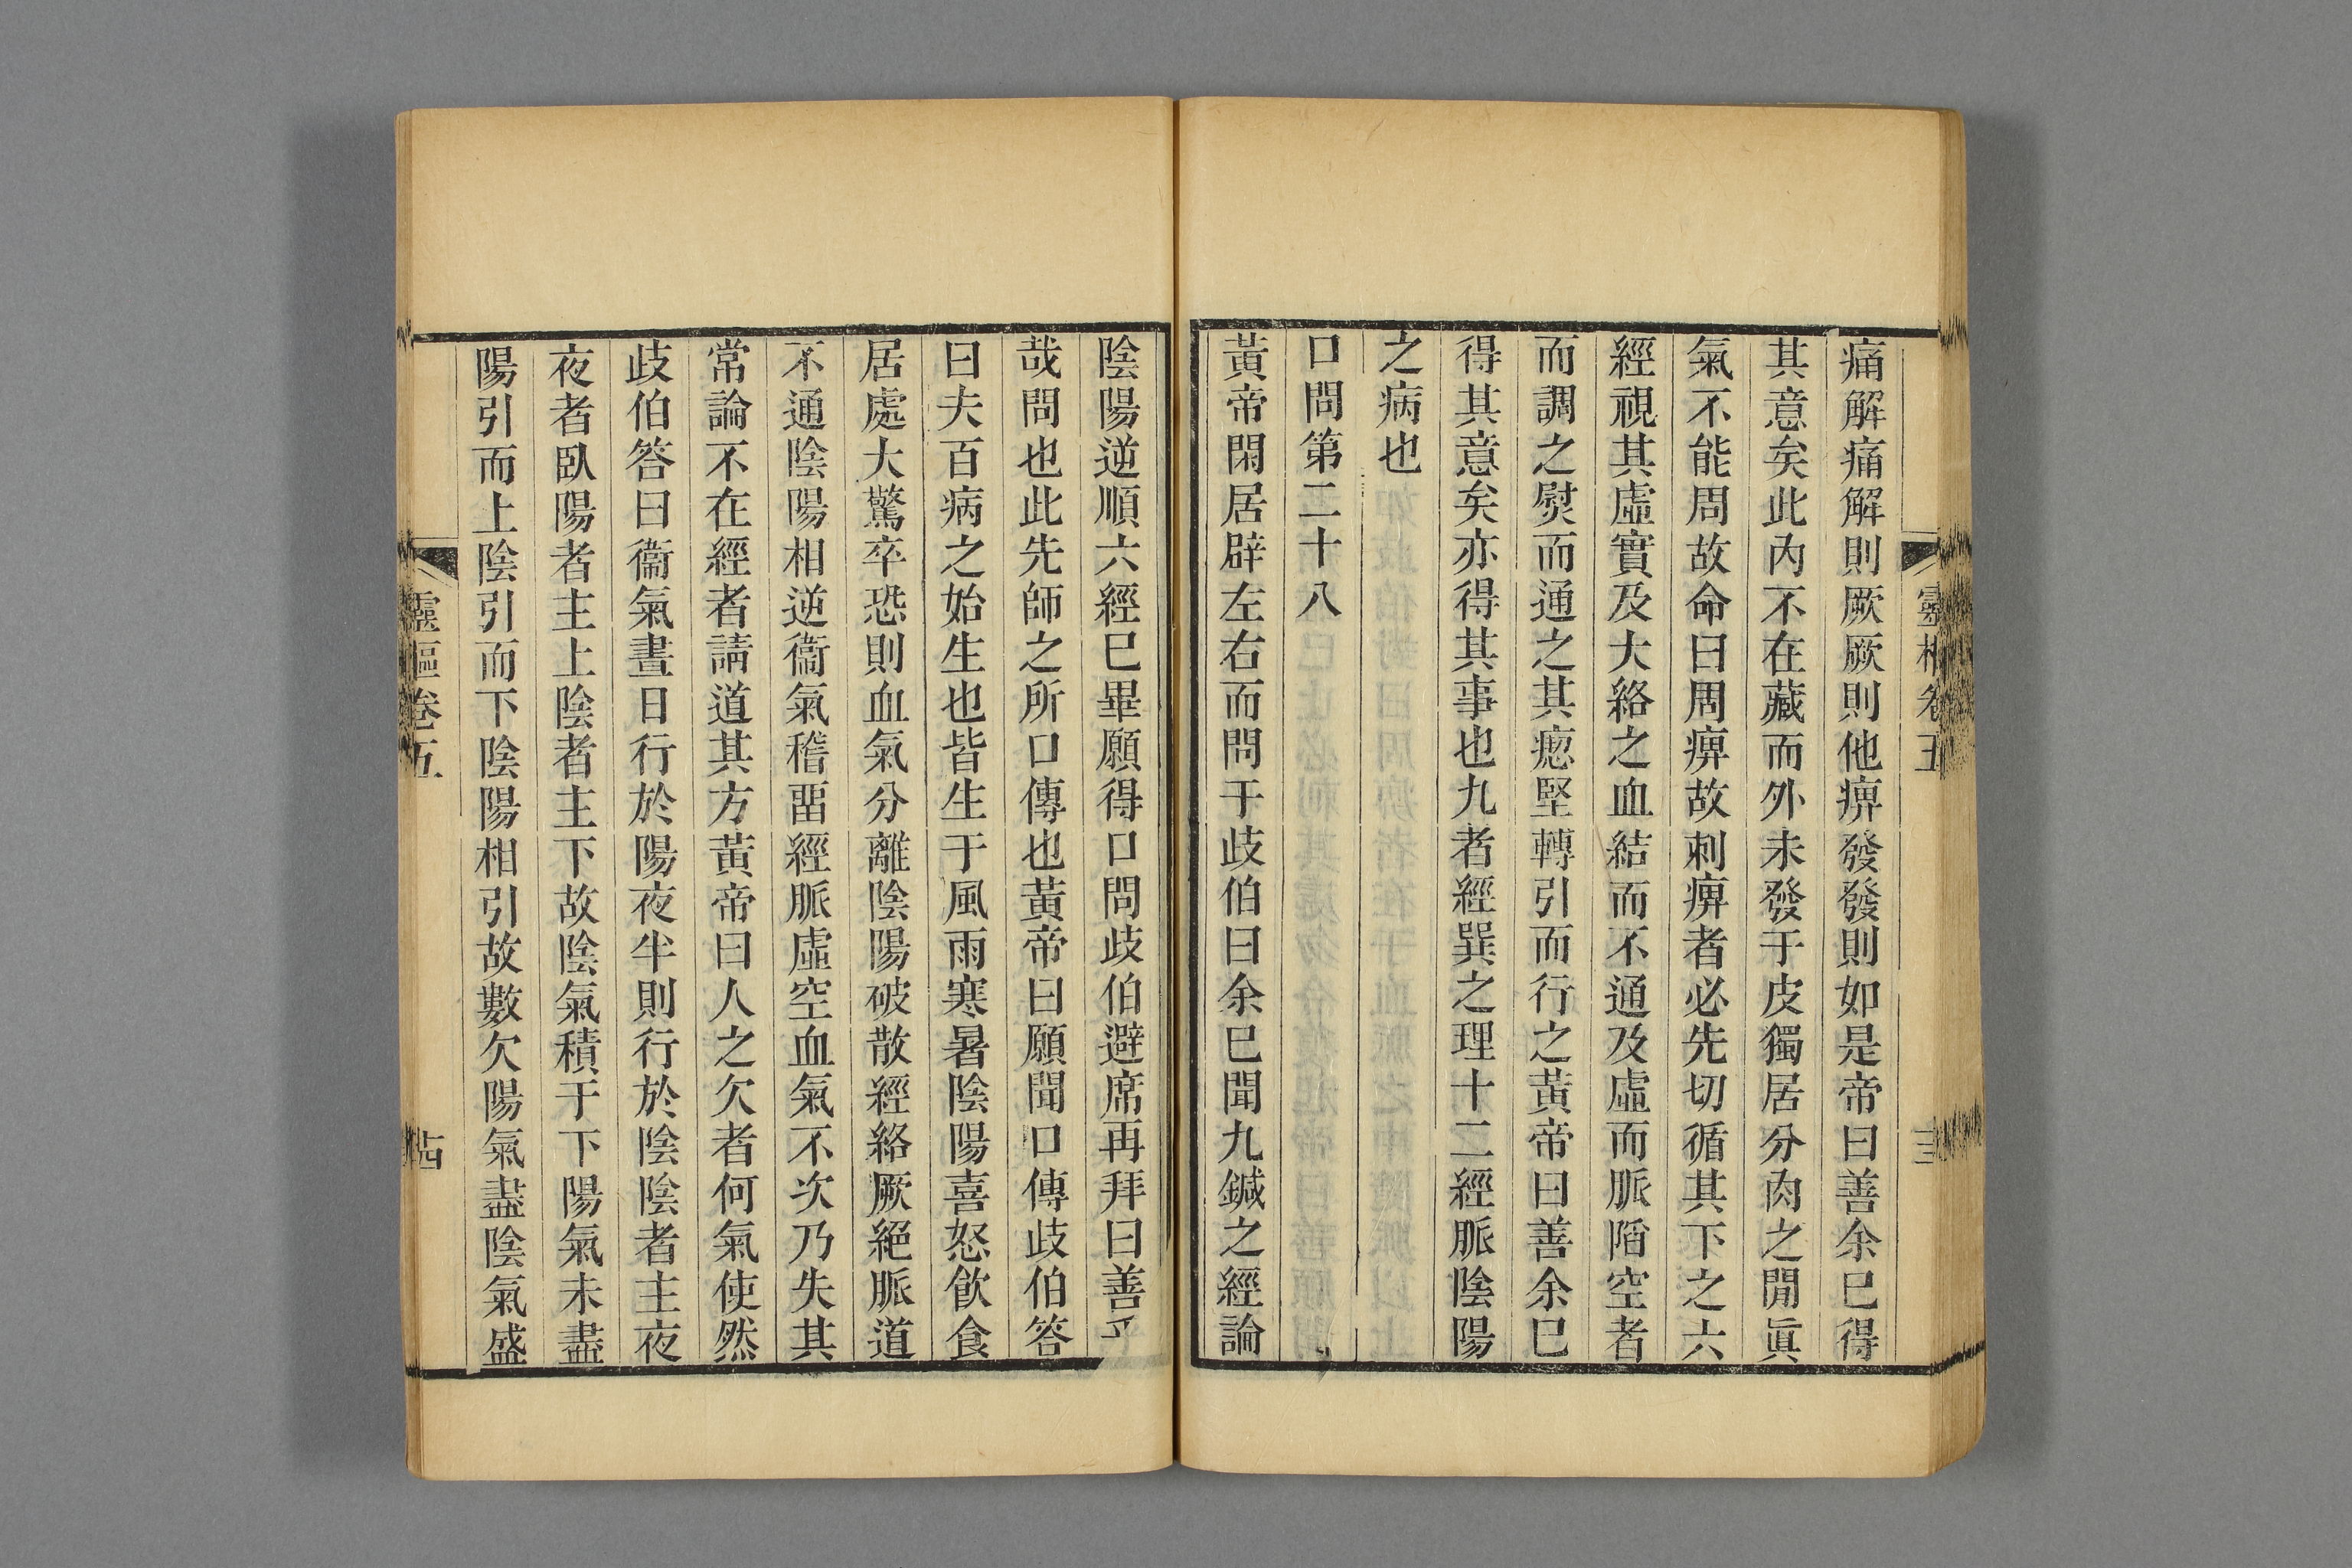 靈樞卷五
痛解痛解則厥厥則他痹發發則如是帝曰善余已得
其意矣此內不在藏而外未發于皮獨居分肉之閒眞
氣不能周故命曰周痹故刺痹者必先切循其下之六
經視其虛實及大絡之血結而不通及虛而脈陷空者
而調之熨而通之其瘛堅轉引而行之黃帝曰善余已
得其意矣亦得其事也九者經巽之理十二經脈陰陽
之病也
口問第二十八
黃帝閑居辟左右而問于歧伯曰余已聞九鍼之經論
陰陽逆順六經已畢願得口問歧伯避席再拜曰善乎
哉問也此先師之所口傳也黃帝曰願聞口傳歧伯答
曰夫百病之始生也皆生于風雨寒暑陰陽喜怒飮食
居處大驚卒恐則血氣分離陰陽破散經絡厥絕脈道
不通陰陽相逆衞氣稽畱經脈虛空血氣不次乃失其
常論不在經者請道其方黃帝曰人之欠者何氣使然
歧伯答曰衞氣晝日行於陽夜半則行於陰陰者主夜
夜者臥陽者主上陰者主下故陰氣積于下陽氣未盡
陽引而上陰引而下陰陽相引故數欠陽氣盡陰氣盛
靈樞卷五